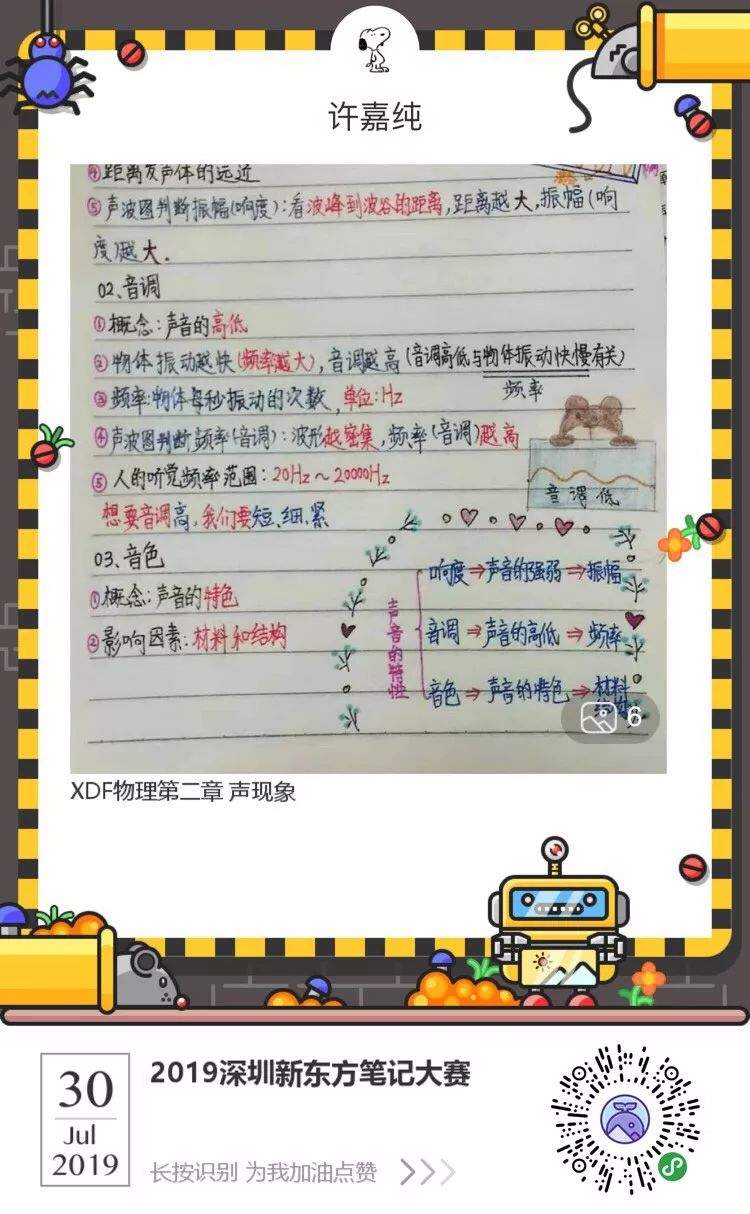 许嘉纯
④距离发声体的远近
⑤声波图判断振幅(响度):看波峰到波谷的距离,距离越大,振幅(响
度)越大.
02、音调
①概念:声音的高低
②物体振动越快(频率越大),音调越高(音调高低与物体振动快慢有关)
频率
③频率:物体每秒振动的次数,单位:Hz
④声波图判断频率(音调):波形越密集,频率(音调)越高
⑤人的听觉频率范围:20Hz~20000Hz
音调低
想要音调高,我们要短、细、紧
03、音色
①概念:声音的特色
②影响因素:材料和结构
声音的特性
响度⇒声音的强弱⇒振幅
音调⇒声音的高低⇒频率
音色⇒声音的特色⇒材料
6
XDF物理第二章 声现象
30
Jul
2019
2019深圳新东方笔记大赛
长按识别 为我加油点赞